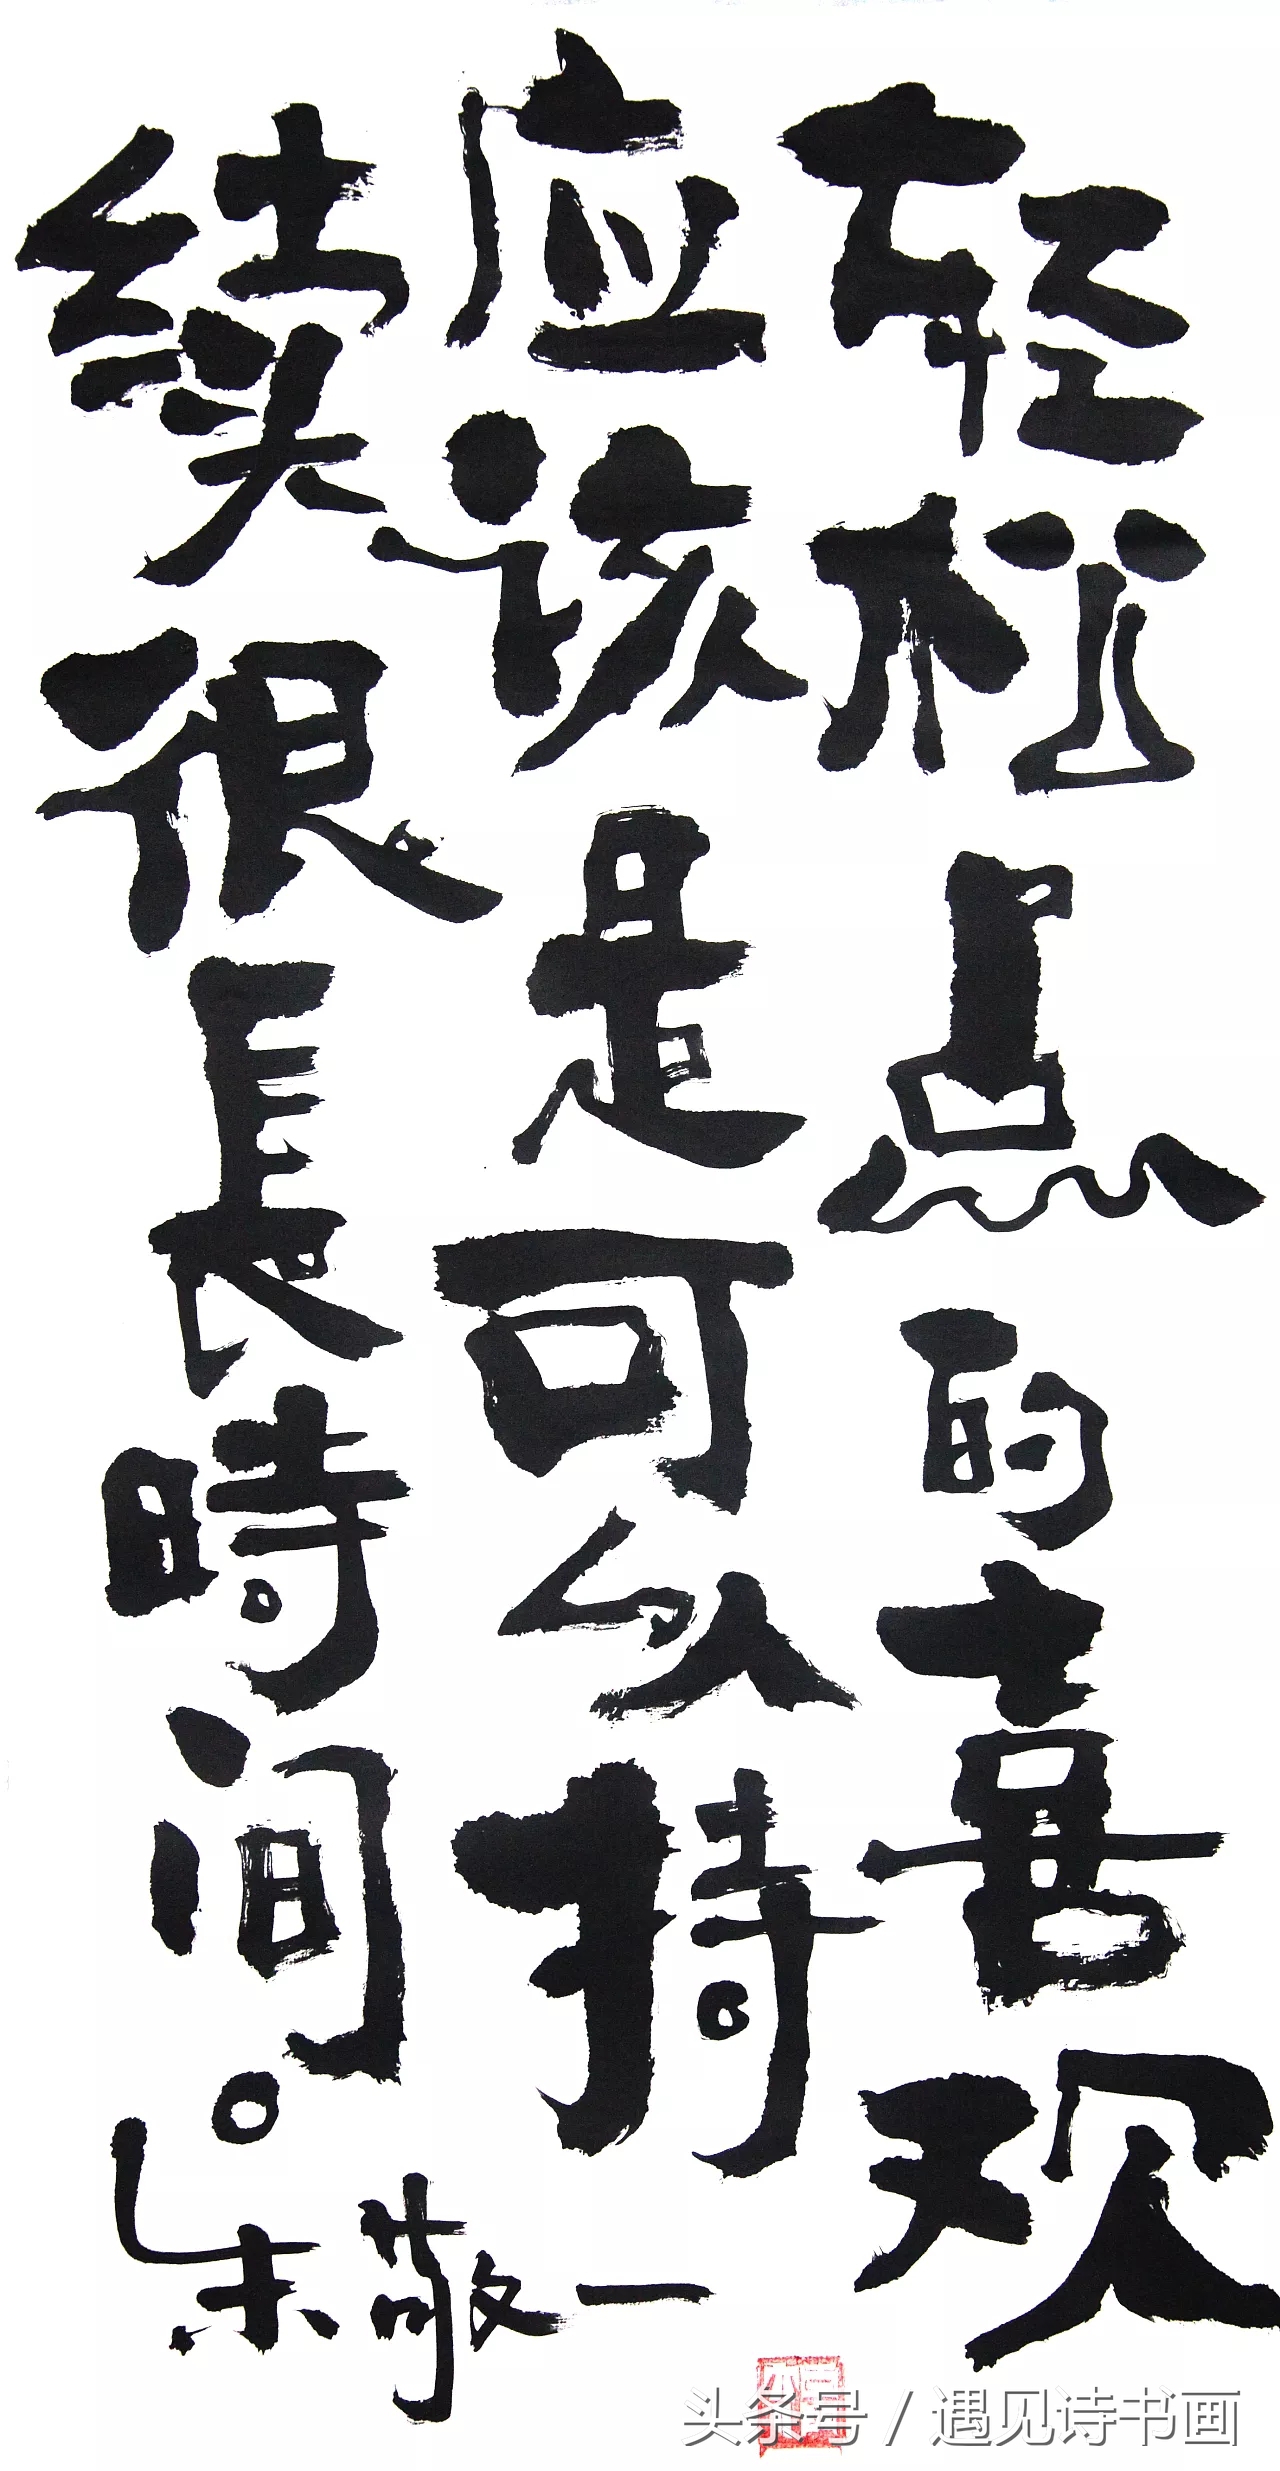 轻松点的喜观
应该是可以持
续很長時间。
朱敬一
头条号 / 遇见诗书画